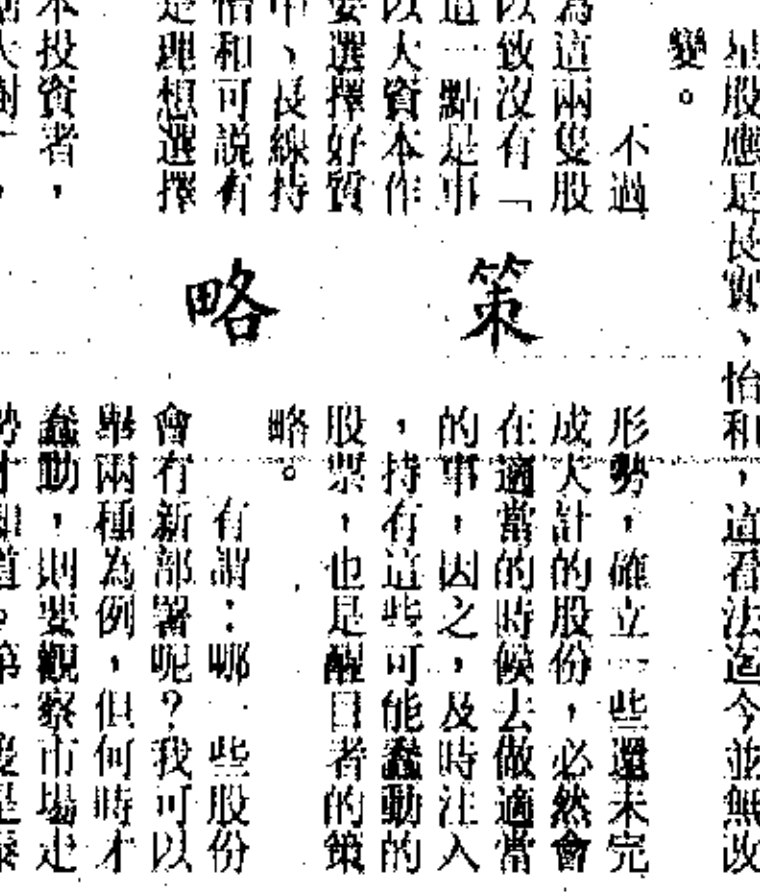 股應是長實、怡和，這看法迄今並無改
變。
不過
為這兩隻股
以致沒有「
一點是事
以大資本作
要選擇好質
中、長線持
怡和可說有
是理想選擇
本投資者，
策略
形勢，確立一些還未完
成大計的股份，必然會
在適當的時候去做適當
的事，因之，及時注入
，持有這些可能蠢動的
股票，也是醒目者的策
略。
有謂：哪一些股份
會有新部署呢？我可以
舉兩種為例，但何時才
蠢動，則要觀察市場走